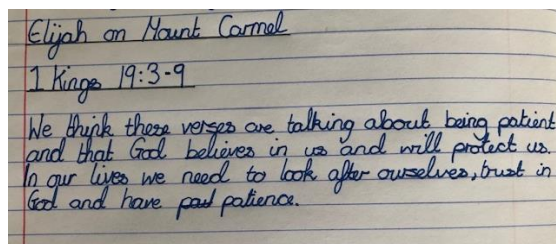 Elijah on Mount Carmel
1 Kings 19:3-9
We think these verses are talking about being patient
and that God believes in us and will protect us.
In our lives we need to look after ourselves, trust in
God and have patience.